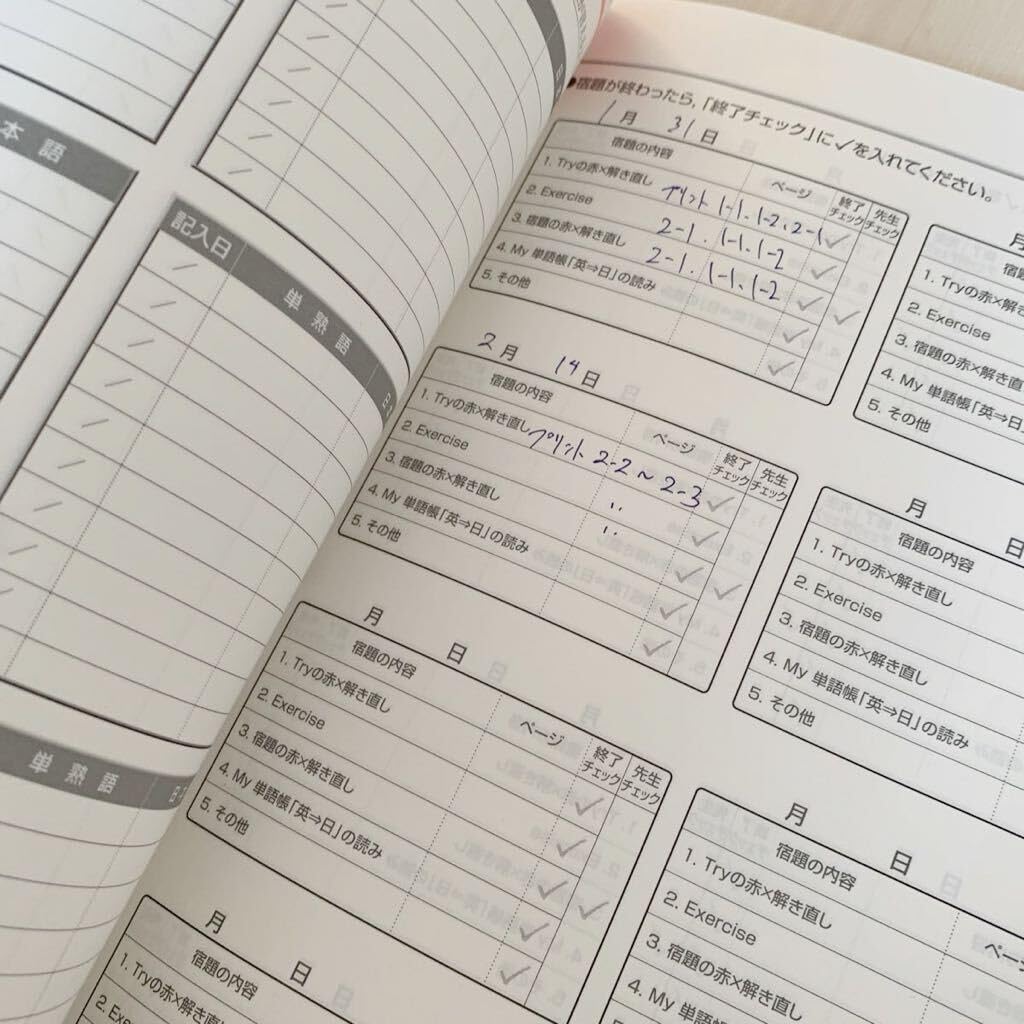 本 語
記入日 単 熟 語 日
単 熟 語 日
●宿題が終わったら,「終了チェック」に✓を入れてください。
1月 31日
宿題の内容 ページ 終了チェック 先生チェック
1. Tryの赤×解き直し プリント 1-1、1-2、2-1
2. Exercise 2-1. 1-1、1-2
3. 宿題の赤×解き直し 2-1. 1-1、1-2
4. My 単語帳「英⇒日」の読み
5. その他
2月 14日
宿題の内容 ページ 終了チェック 先生チェック
1. Tryの赤×解き直し プリント 2-2～2-3
2. Exercise 〃
3. 宿題の赤×解き直し 〃
4. My 単語帳「英⇒日」の読み
5. その他
月 日
宿題の内容 ページ 終了チェック 先生チェック
1. Tryの赤×解き直し
2. Exercise
3. 宿題の赤×解き直し
4. My 単語帳「英⇒日」の読み
5. その他
月 日
宿題の内容
1. Tryの赤×解き直し
2. Exercise
月
宿題
1. Tryの赤×解き
2. Exercise
3. 宿題の赤×解き直
4. My 単語帳「英⇒
5. その他
月 日
宿題の内容
1. Tryの赤×解き直し
2. Exercise
3. 宿題の赤×解き直し
4. My 単語帳「英⇒日」の読み
5. その他
月 日
宿題の内容 ペー
1. Tryの赤×解き直し
2. Exercise
3. 宿題の赤×解き直し
4. My 単語帳「英⇒日」の読み